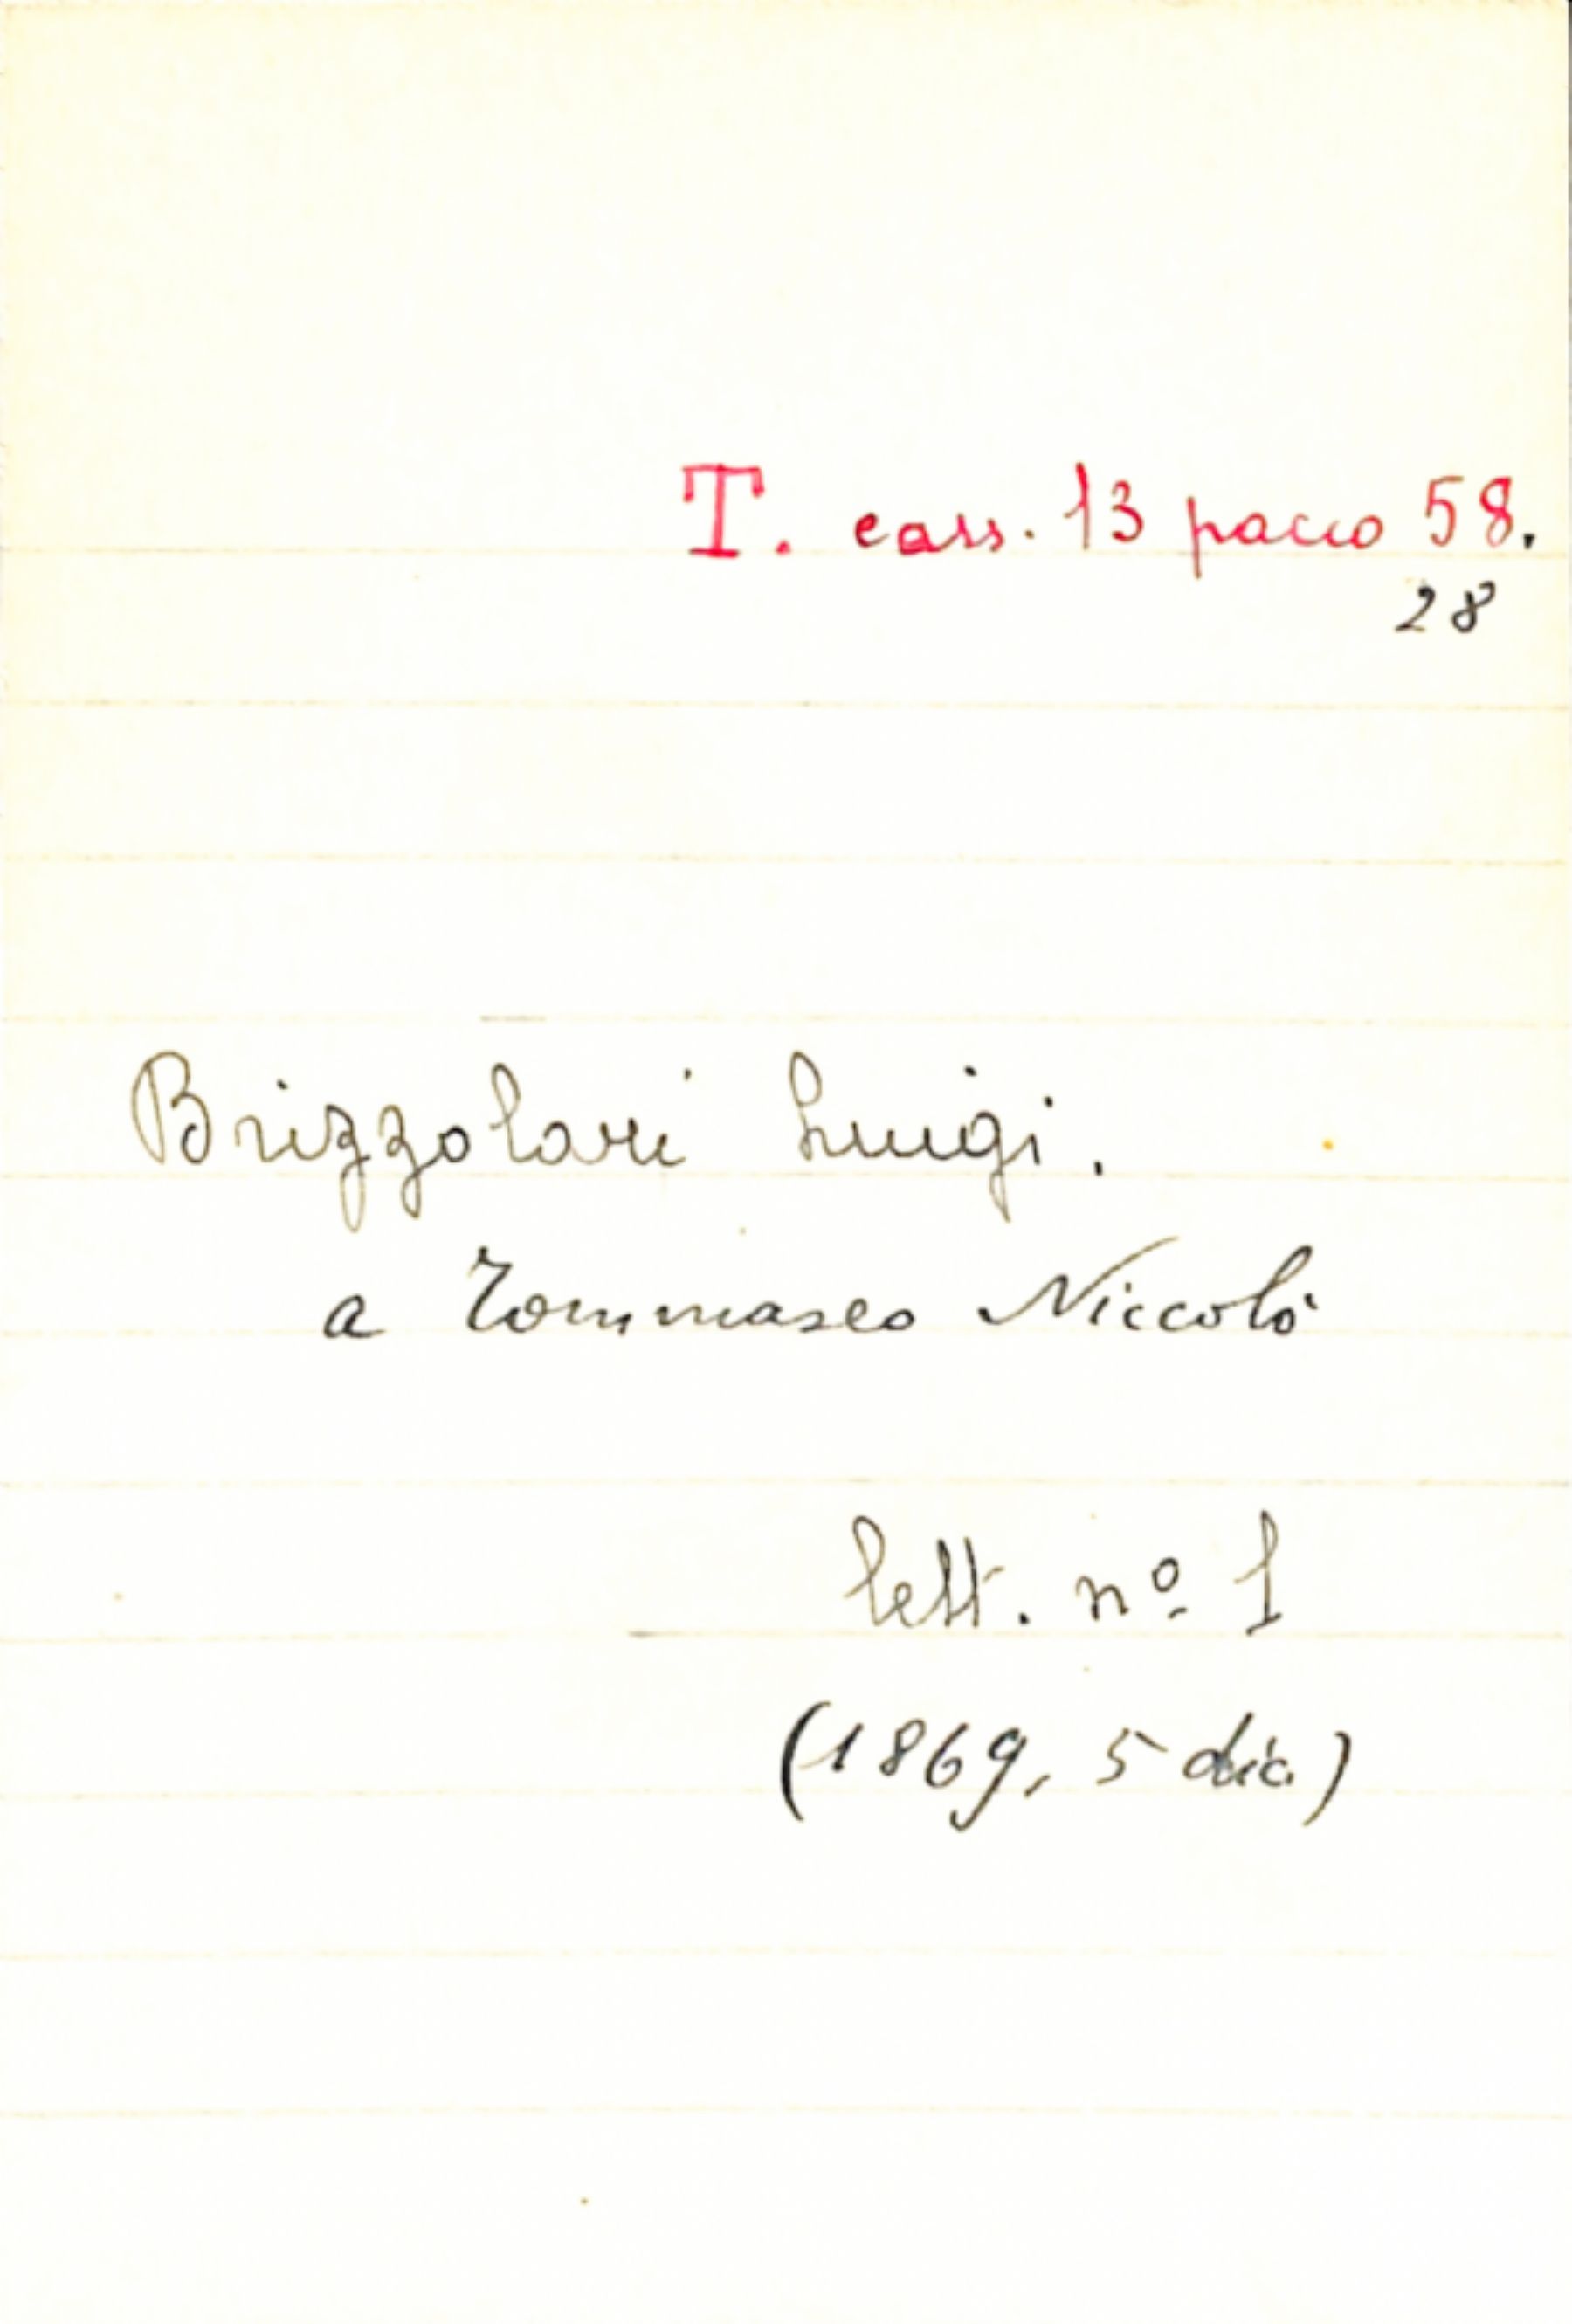 T. cass. 13 pacco 58.
28
Brizzolari Luigi.
a Tommaseo Niccolò
lett. nº 1
(1869, 5 dic.)